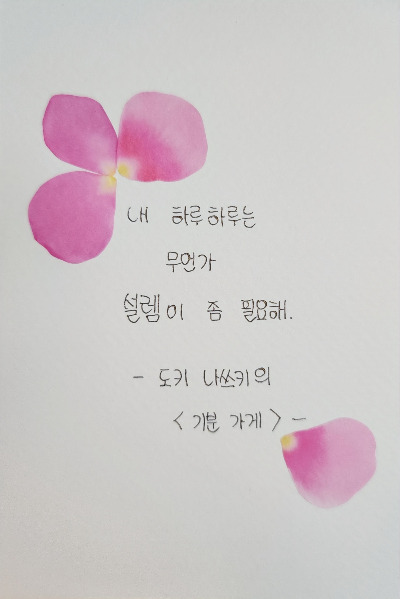 내 하루하루는
무언가
설렘이 좀 필요해.
- 도키 나쓰키의
<기분 가게> -